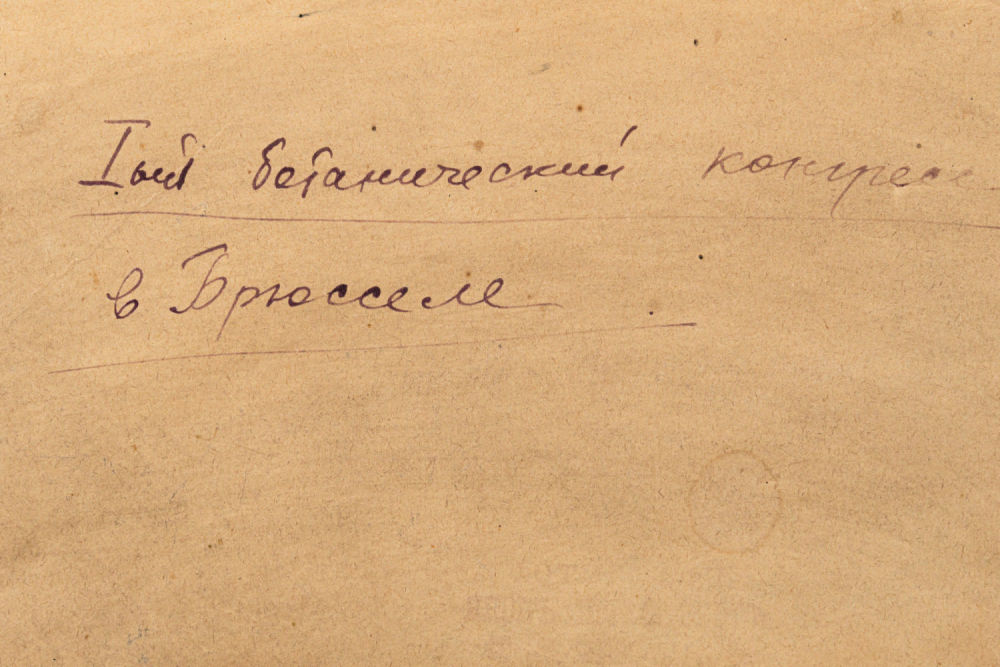 Iый ботанический конгресс
в Брюсселе